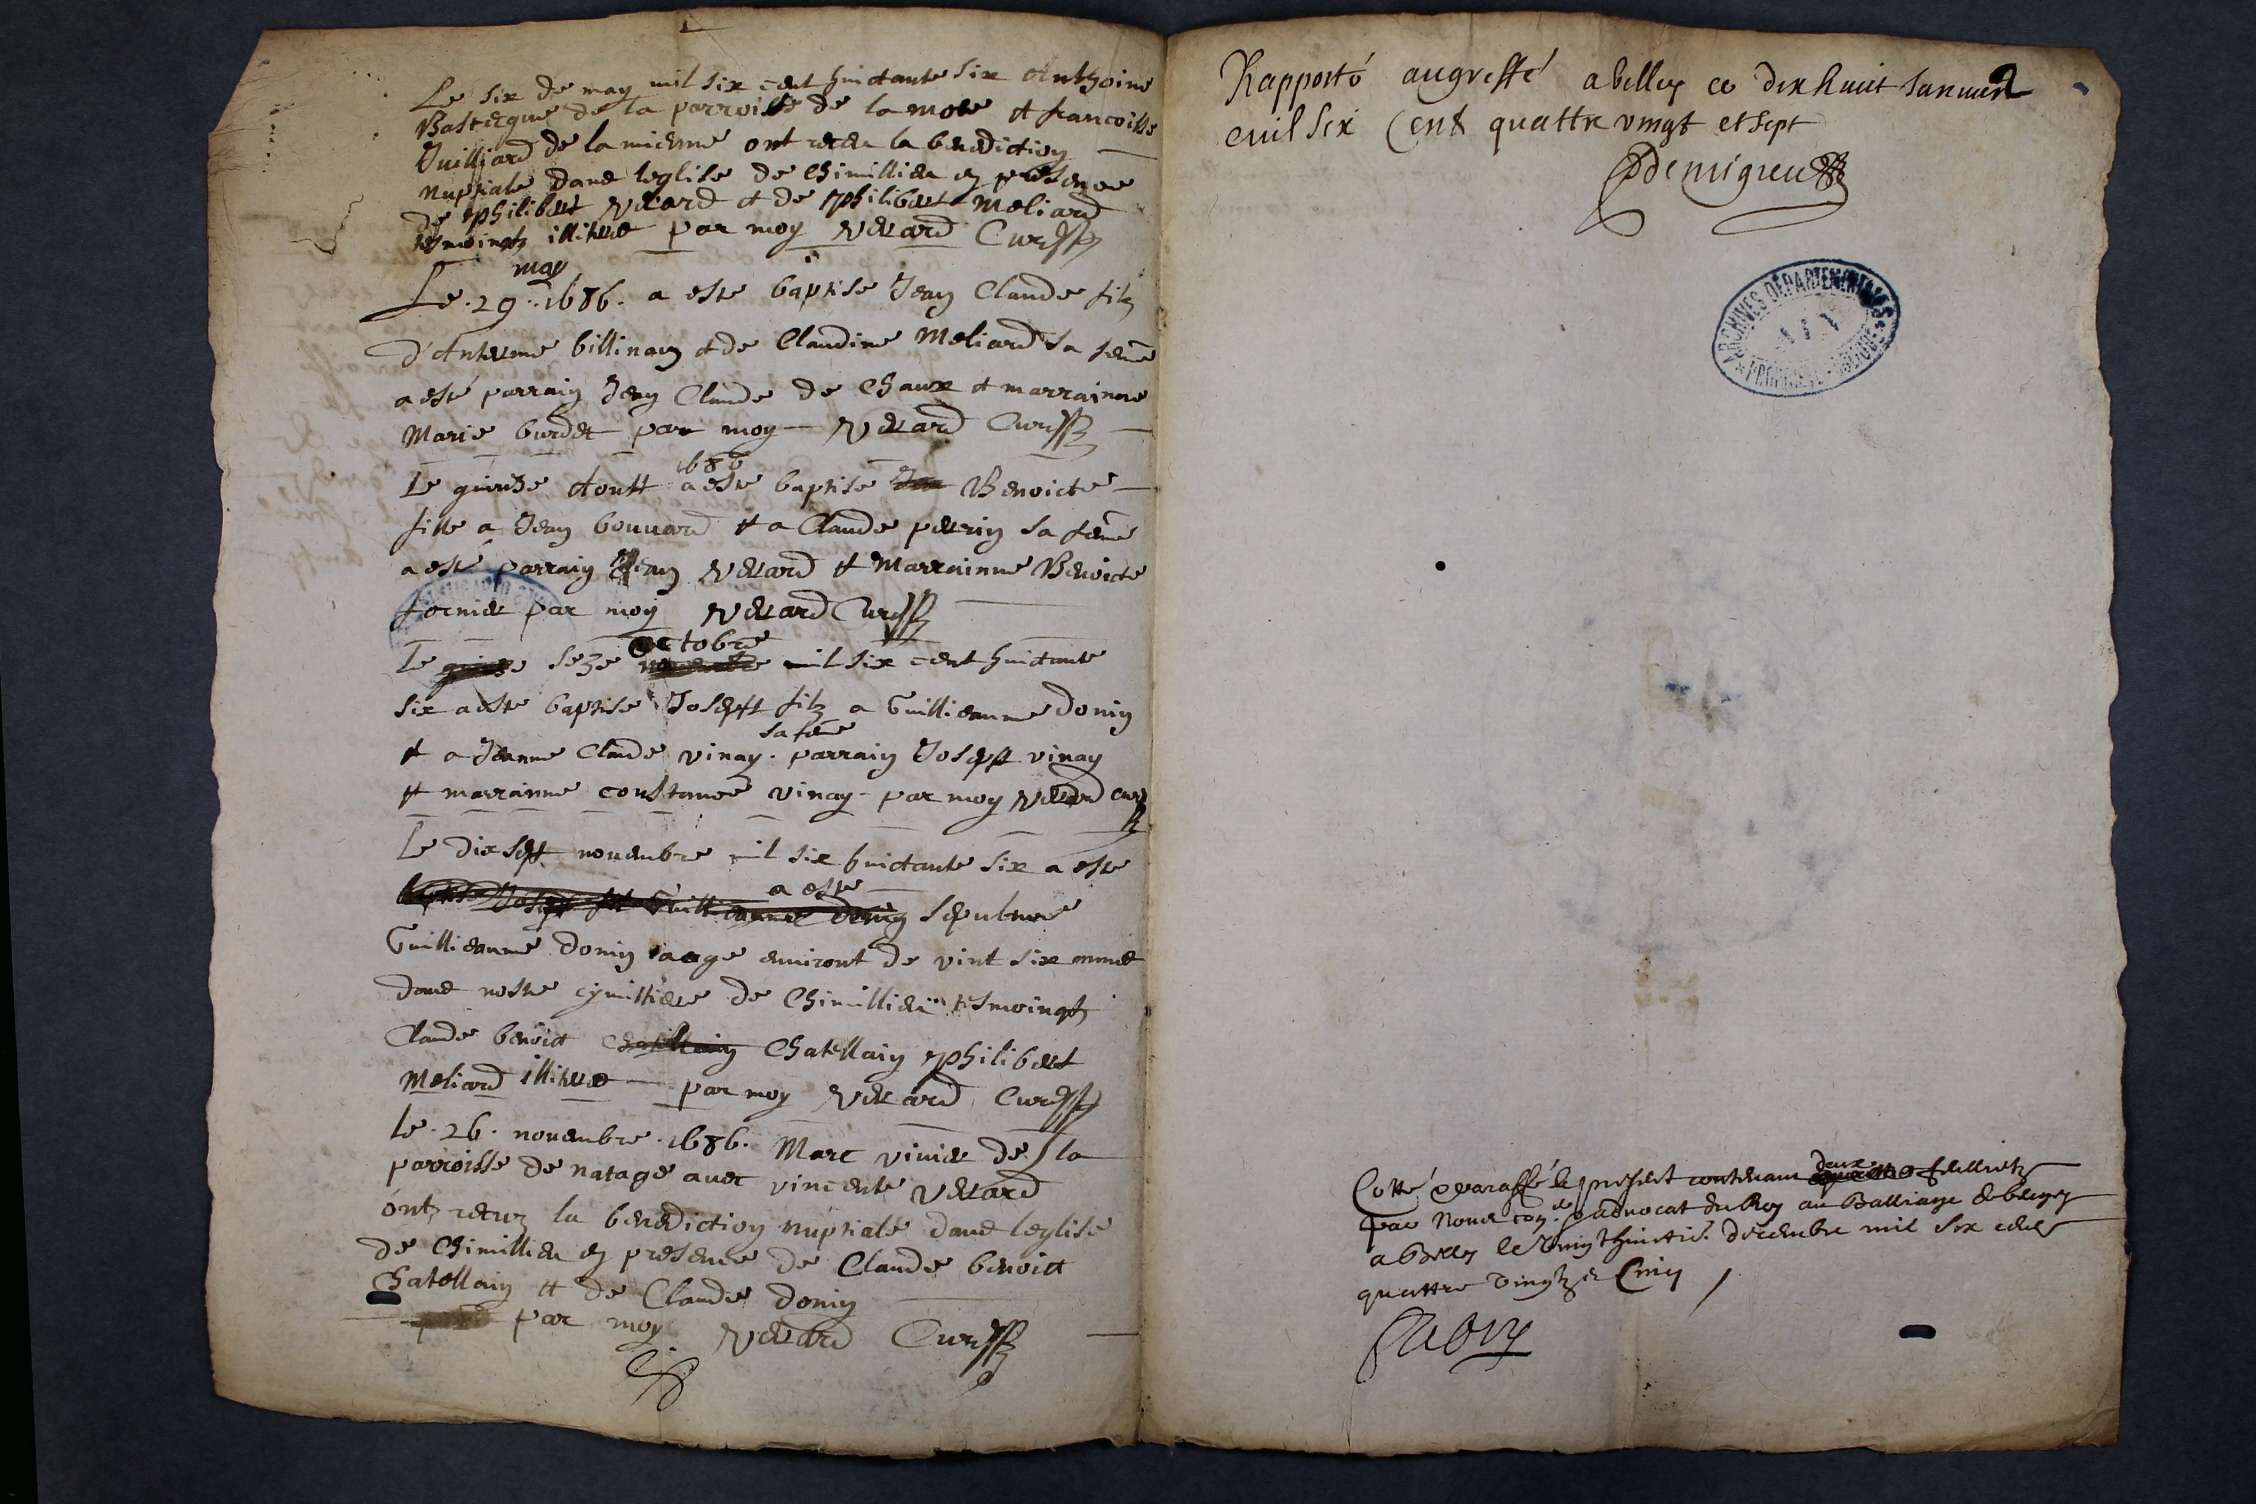 Le six de may mil six cent huictante six Anthoine
Bastergue de la parroisse de la mote et francoise
Juilliard de la mienne ont receu la benediction
nuptiale dans leglise de Chimillieu en presence
de philibert Verard et de philibert Meliard
tesmoingtz illiteres par moy Verard Curé
may
Le . 29 . 1686 . a este baptise Jean Claude filz
d'Anterme billinan et de Claudine Meliard sa feme
a esté parrain Jean Claude de Chaux et marrainne
Marie burdet par moy Verard Curé
1686
Le quinze Aoust a este baptise Benoicte
fille a Jean bouvard et a Claude perrin sa feme
a esté parrain Jean Verard et Marrainne Benoicte
fornier par moy Verard Curé
octobre
Le quinze seze novembre mil six cent huictante
six a este baptise Joseph filz a Guillieaume donin
sa feme
et a Jeanne Claude vinay . parrain Joseph vinay
et marrainne constance vinay - par moy Verard curé
Le dix sept novembre mil six huictante six a este
a este
baptise Joseph filz Guillieaume donin sepulture
Guillieaume donin aage environt de vint six annee
dans nostre cymittiere de Chimillieu tesmoingtz
Claude benoict Chatellain Chatellain philibert
Meliard illiteres par moy Verard Curé
le . 26 . novembre . 1686 . Marc vivier de la
parroisse de natage avec vincente Verard
ontz receuz la benediction nuptiale dans leglise
de Chimillieu en presence de Claude benoict
Chatellain et de Claude donin
par moy Verard Curé
Rapporté au greffe a belley ce dix huit Janvier
mil six Cent quattre vingt et sept
Demigieu
ARCHIVES DÉPARTEMENTALES
AIN
PROPRIÉTÉ PUBLIQUE
deux
Cotté & paraffé le present contenant quattre feullietz
par Nous con.er & advocat du Roy au Balliage de bugey
a Belley le vingt huictie. decembre mil six cents
quattre vingtz et Cinq